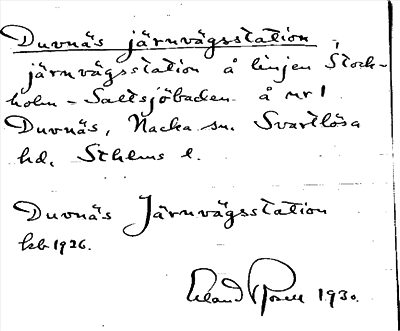 Duvnäs järnvägsstation
järnvägsstation å linjen Stock-
holm - Saltsjöbaden å nr 1
Duvnäs, Nacka sn. Svartlösa
hd, Sthlms l.
Duvnäs Järnvägsstation
kb 1926.
Erland Rosell 1930.